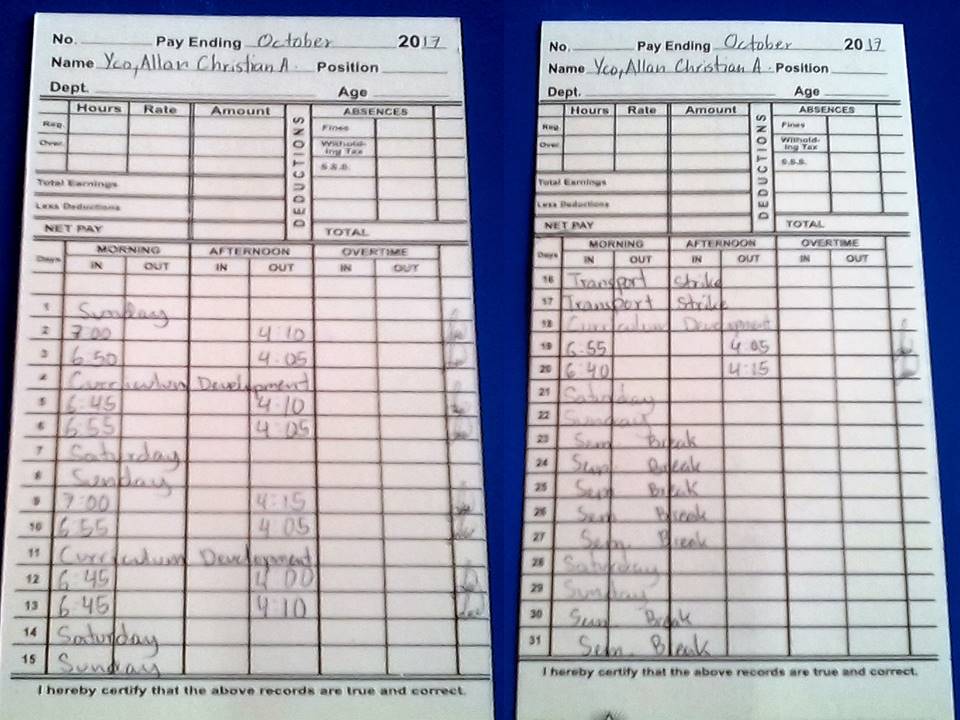 No. Pay Ending October 2017
Name Yco, Allan Christian A. Position
Dept. Age
Hours Rate Amount DEDUCTIONS ABSENCES
Reg. Fines
Over. Withold-
ing Tax
S.S.S.
Total Earnings
Less Deductions
NET PAY TOTAL
Days MORNING AFTERNOON OVERTIME
IN OUT IN OUT IN OUT
1 Sunday
2 7:00 4:10
3 6:50 4:05
4 Curriculum Development
5 6:45 4:10
6 6:55 4:05
7 Saturday
8 Sunday
9 7:00 4:15
10 6:55 4:05
11 Curriculum Development
12 6:45 4:00
13 6:45 4:10
14 Saturday
15 Sunday
I hereby certify that the above records are true and correct.
No. Pay Ending October 2017
Name Yco, Allan Christian A. Position
Dept. Age
Hours Rate Amount DEDUCTIONS ABSENCES
Reg. Fines
Over. Withold-
ing Tax
S.S.S.
Total Earnings
Less Deductions
NET PAY TOTAL
Days MORNING AFTERNOON OVERTIME
IN OUT IN OUT IN OUT
16 Transport Strike
17 Transport Strike
18 Curriculum Development
19 6:55 4:05
20 6:40 4:15
21 Saturday
22 Sunday
23 Sem. Break
24 Sem. Break
25 Sem. Break
26 Sem. Break
27 Sem. Break
28 Saturday
29 Sunday
30 Sem. Break
31 Sem. Break
I hereby certify that the above records are true and correct.